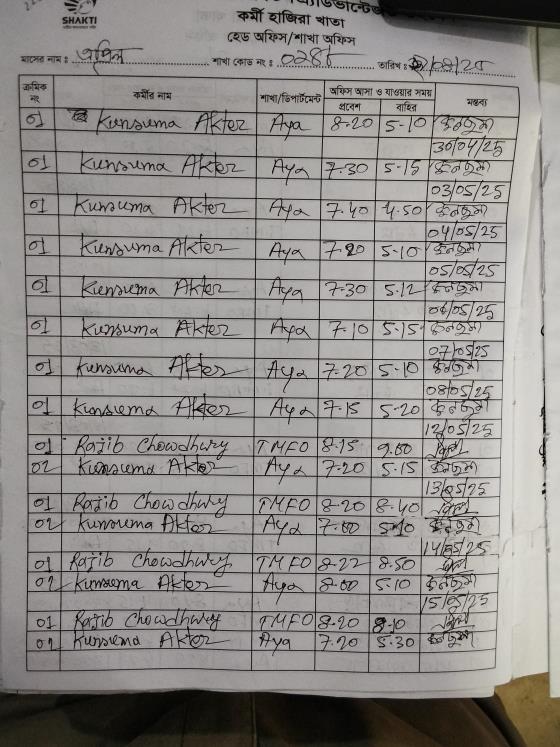 SHAKTI
কর্মী হাজিরা খাতা
হেড অফিস/শাখা অফিস
মাসের নাম : এপ্রিল শাখা কোড নং : 0286 তারিখ : /05/25
ক্রমিক নং কর্মীর নাম শাখা/ডিপার্টমেন্ট অফিস আসা ও যাওয়ার সময় মন্তব্য
প্রবেশ বাহির
01 Kunsuma Akter Aya 8-20 5-10 কুনছুমা
30/04/25
01 Kunsuma Akter Aya 7-30 5-15 কুনছুমা
03/05/25
01 Kunsuma Akter Aya 7-40 4-50 কুনছুমা
04/05/25
01 Kunsuma Akter Aya 7-20 5-10 কুনছুমা
05/05/25
01 Kunsuma Akter Aya 7-30 5-12 কুনছুমা
06/05/25
01 Kunsuma Akter Aya 7-10 5-15 কুনছুমা
07/05/25
01 Kunsuma Akter Aya 7-20 5-10 কুনছুমা
08/05/25
01 Kunsuma Akter Aya 7-15 5-20 কুনছুমা
12/05/25
01 Rajib Chowdhury TMFO 8-15 9.00
02 Kunsuma Akter Aya 7-20 5-15 কুনছুমা
13/05/25
01 Rajib Chowdhury TMFO 8-20 8-40
02 Kunsuma Akter Aya 7-00 5-10 কুনছুমা
14/05/25
01 Rajib Chowdhury TMFO 8-22 8-50
02 Kunsuma Akter Aya 8-00 5-10 কুনছুমা
15/05/25
01 Rajib Chowdhury TMFO 8-20 8-10
02 Kunsuma Akter Aya 7-20 5-30 কুনছুমা